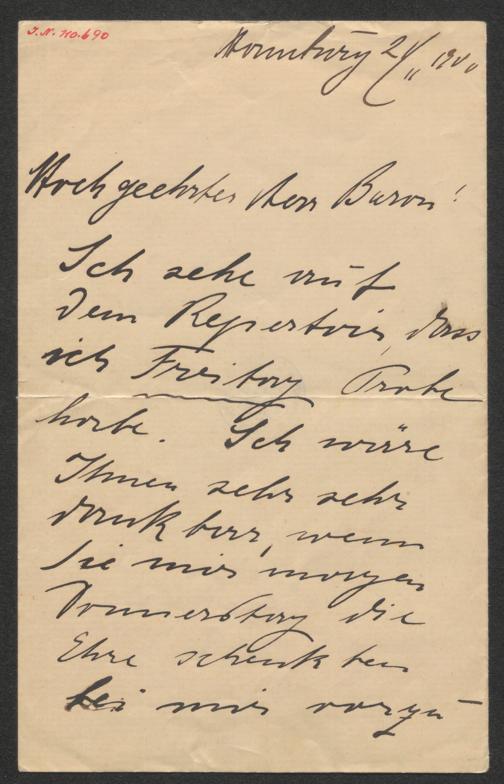 I.N. 110.690
Hamburg 2/11 1900
Hochgeehrter Herr Baron!
Ich sehe auf
dem Repertoir, dass
ich Freitag Probe
habe. Ich wäre
Ihnen sehr sehr
dankbar, wenn
Sie mir morgen
Donnerstag die
Ehre schenkten
bei mir vorzu-